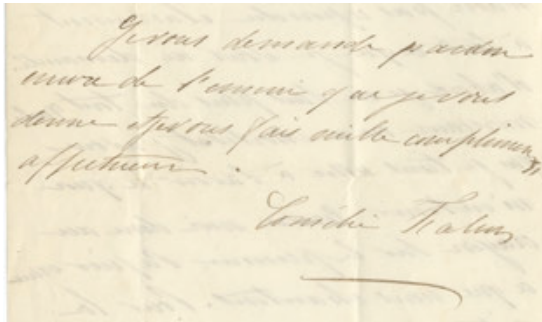 Je vous demande pardon
encore de l'ennui que je vous
donne et je vous fais mille complimens
affectueux.